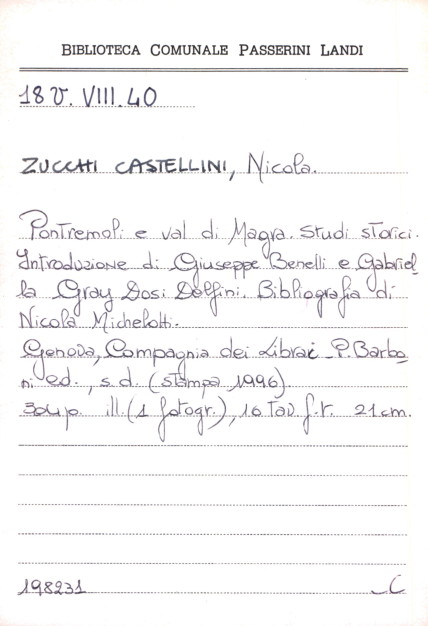 BIBLIOTECA COMUNALE PASSERINI LANDI
18 V. VIII. 40
ZUCCHI CASTELLINI, Nicola.
Pontremoli e val di Magra. Studi storici.
Introduzione di Giuseppe Benelli e Gabriel
la Gray Dosi Delfini. Bibliografia di
Nicola Michelotti.
Genova, Compagnia dei Librai - P. Barbo
ni ed., s.d. (stampa 1996)
304 p. ill. (1 fotogr.), 16 tav. f.t. 21 cm.
198231